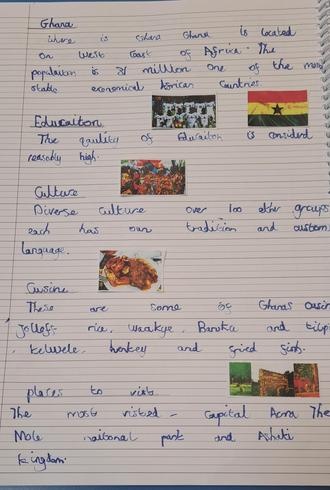 Ghana
where is Ghana Ghana is Located
on West coast of Africa. The
population is 31 million one of the most
stable economical African countries.
Education
The quility of Educaiton is considerd
reasobly high.
Culture
Diverse culture over 100 ether groups
each has own tradition and custom
language.
Cusine
These are some of Ghanas cusin
Jolleff rice, Waakye, Banku and tilip
, kelwele, kenkey and fried fish.
places to visit
The most visted - Capital Accra The
Mole national park and Ashati
kingdom.